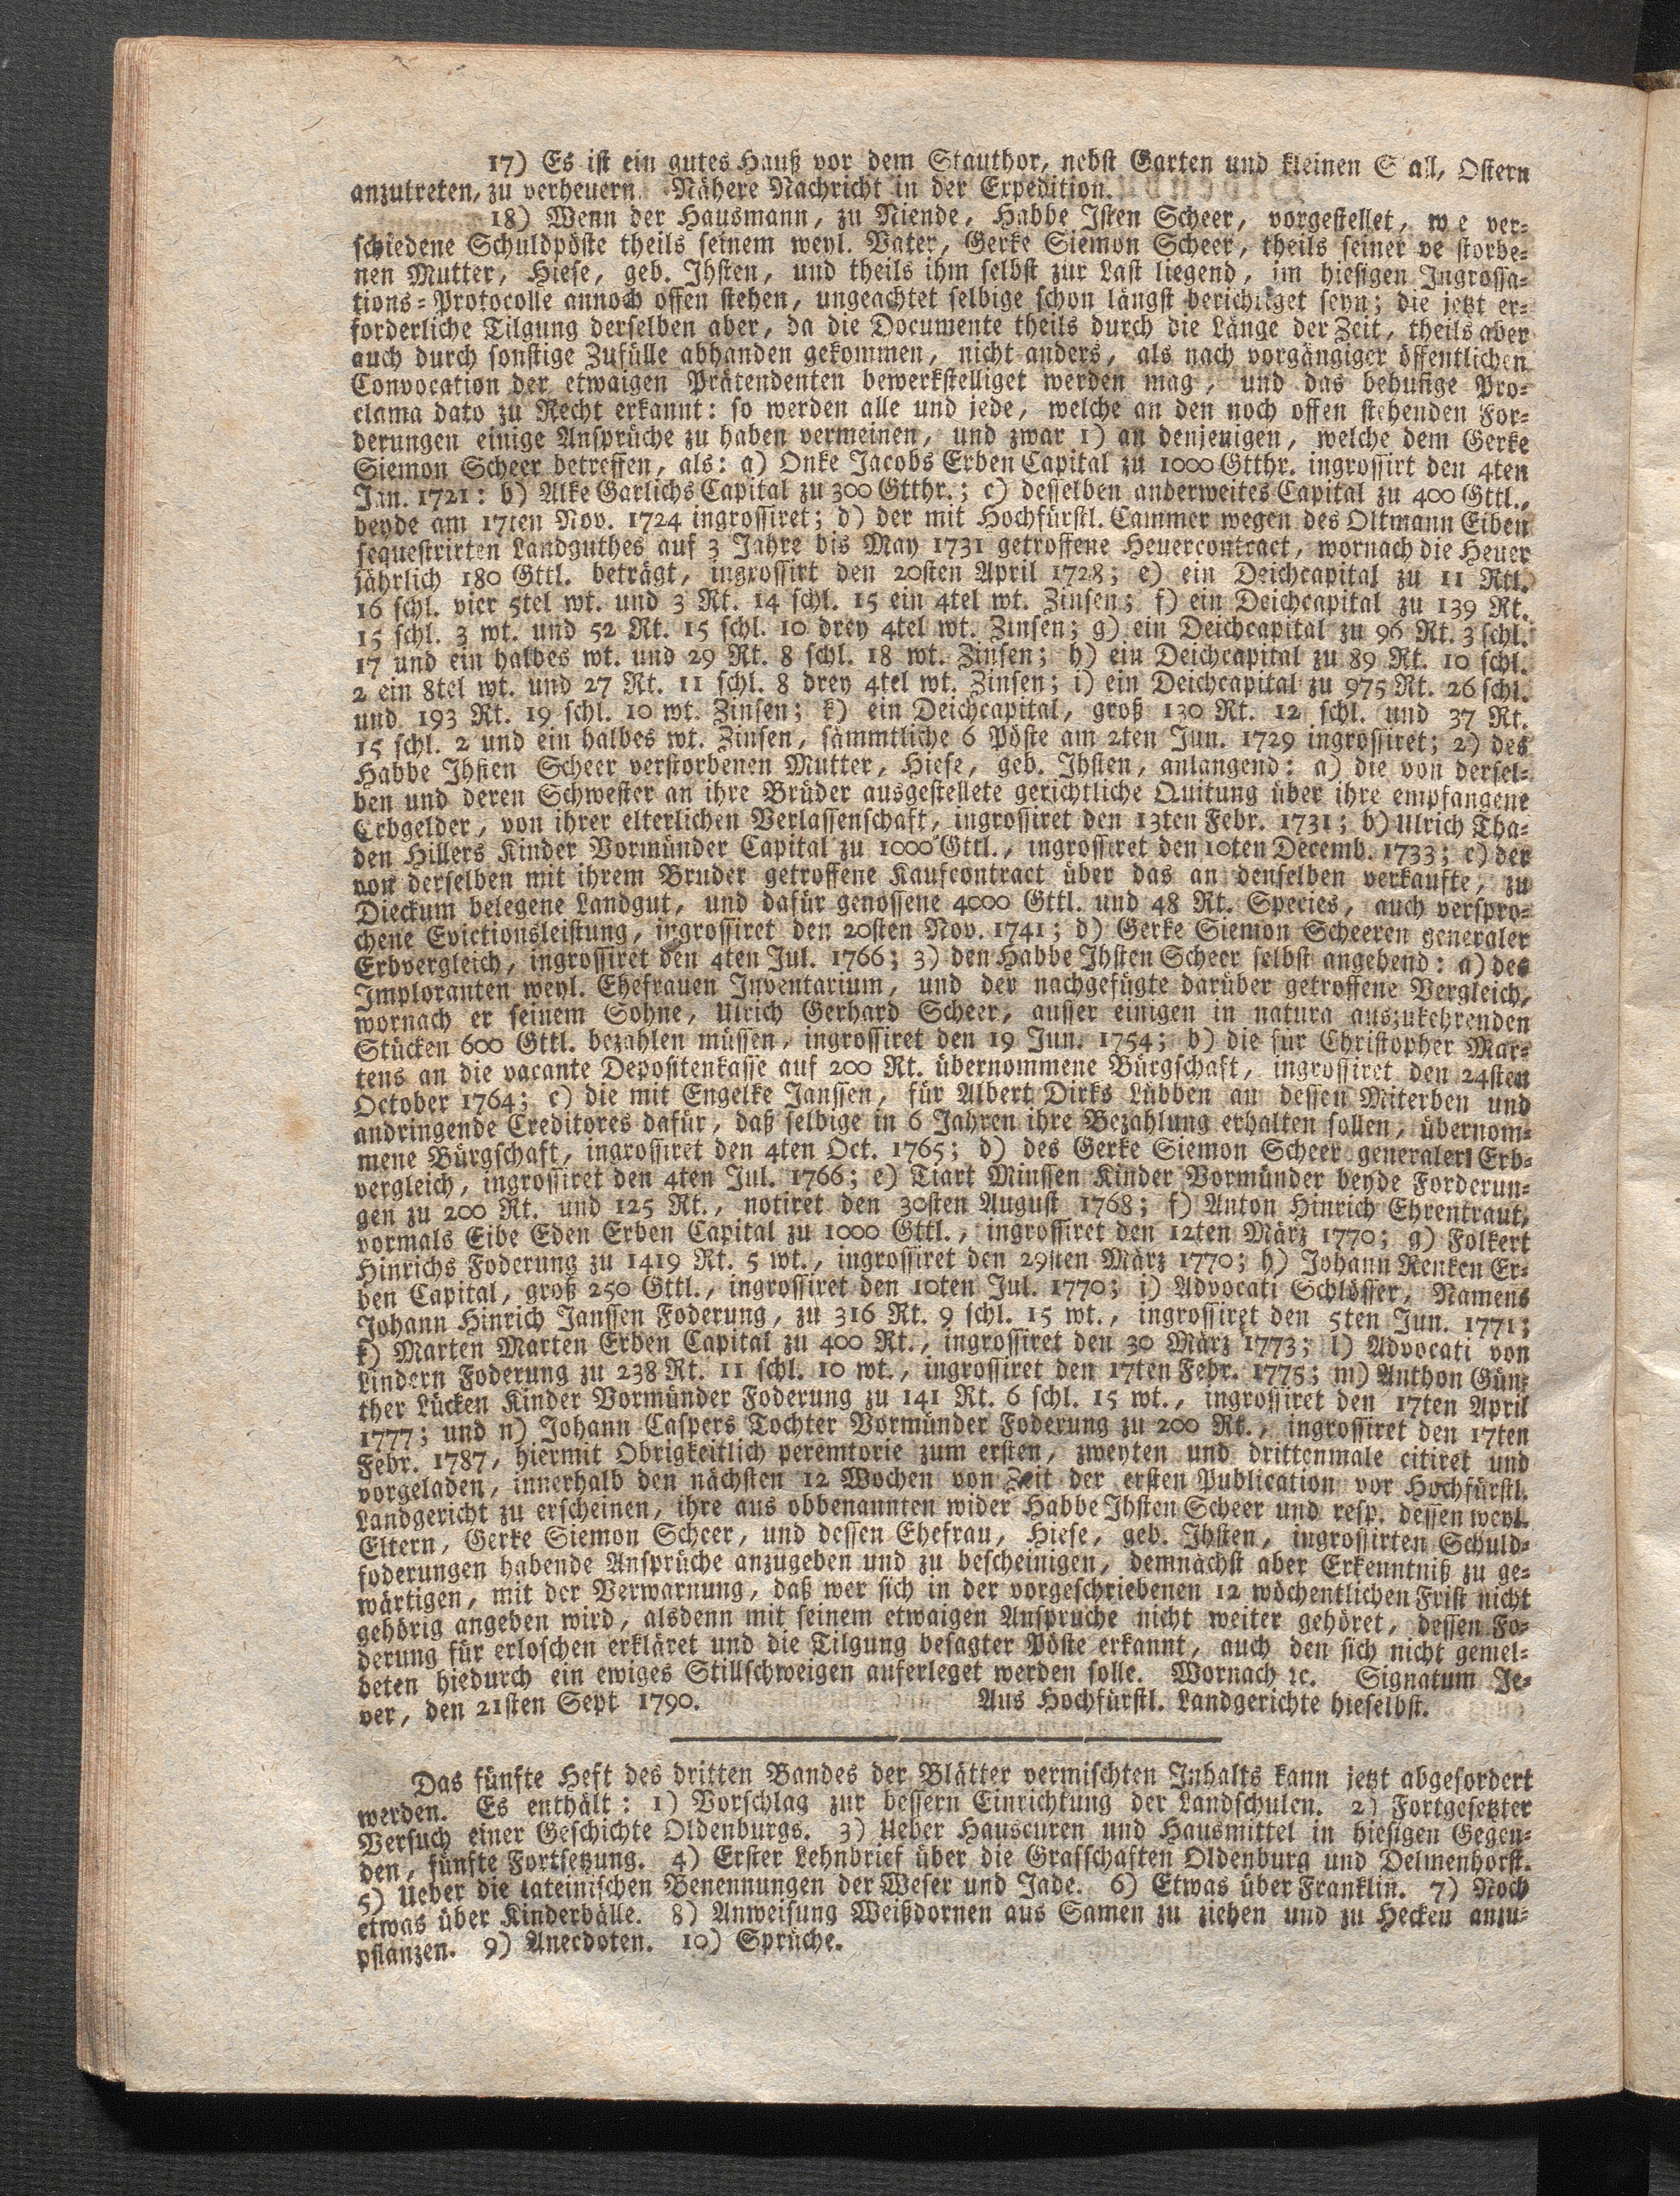 17) Es ist ein gutes Hauß vor dem Stauthor, nebst Garten und kleinen S all, Ostern
anzutreten, zu verheuern. Nähere Nachricht in der Expedition.
18) Wenn der Hausmann, zu Niende, Habbe Isten Scheer, vorgestellet, w e ver-
schiedene Schuldpöste theils seinem weyl. Vater, Gerke Siemon Scheer, theils seiner ve storbe-
nen Mutter, Hiese, geb. Ihsten, und theils ihm selbst zur Last liegend, im hiesigen Ingrossa-
tions-Protocolle annoch offen stehen, ungeachtet selbige schon längst berichtiget seyn; die jetzt er-
forderliche Tilgung derselben aber, da die Documente theils durch die Länge der Zeit, theils aber
auch durch sonstige Zufülle abhanden gekommen, nicht anders, als nach vorgängiger öffentlichen
Convocation der etwaigen Prätendenten bewerkstelliget werden mag, und das behufige Pro-
clama dato zu Recht erkannt: so werden alle und jede, welche an den noch offen stehenden For-
derungen einige Ansprüche zu haben vermeinen, und zwar 1) an denjenigen, welche dem Gerke
Siemon Scheer betreffen, als: a) Onke Jacobs Erben Capital zu 1000 Gtthr. ingrossirt den 4ten
Jan. 1721: b) Alke Garlichs Capital zu 300 Gtthr.; c) desselben anderweites Capital zu 400 Gttl.,
beyde am 17ten Nov. 1724 ingrossiret; d) der mit Hochfürstl. Cammer wegen des Oltmann Eiben
sequestrirten Landguthes auf 3 Jahre bis May 1731 getroffene Heuercontract, wornach die Heuer
jährlich 180 Gttl. beträgt, ingrossirt den 20sten April 1728; e) ein Deichcapital zu 11 Rtl.
16 schl. vier 5tel wt. und 3 Rt. 14 schl. 15 ein 4tel wt. Zinsen; f) ein Deichcapital zu 139 Rt.
15 schl. 3 wt. und 52 Rt. 15 schl. 10 drey 4tel wt. Zinsen; g) ein Deichcapital zu 96 Rt. 3 schl.
17 und ein halbes wt. und 29 Rt. 8 schl. 18 wt. Zinsen; h) ein Deichcapital zu 89 Rt. 10 schl.
2 ein 8tel wt. und 27 Rt. 11 schl. 8 drey 4tel wt. Zinsen; i) ein Deichcapital zu 975 Rt. 26 schl.
und 193 Rt. 19 schl. 10 wt. Zinsen; k) ein Deichcapital, groß 130 Rt. 12 schl. und 37 Rt.
15 schl. 2 und ein halbes wt. Zinsen, sämmtliche 6 Pöste am 2ten Jun. 1729 ingrossiret; 2) des
Habbe Ihsten Scheer verstorbenen Mutter, Hiese, geb. Ihsten, anlangend: a) die von dersel-
ben und deren Schwester an ihre Brüder ausgestellete gerichtliche Quitung über ihre empfangene
Erbgelder, von ihrer elterlichen Verlassenschaft, ingrossiret den 13ten Febr. 1731; b) Ulrich Tha-
den Hillers Kinder Vormünder Capital zu 1000 Gttl., ingrossiret den 10ten Decemb. 1733; c) der
von derselben mit ihrem Bruder getroffene Kaufcontract über das an denselben verkaufte, zu
Dieckum belegene Landgut, und dafür genossene 4000 Gttl. und 48 Rt. Species, auch verspro-
chene Evictionsleistung, ingrossiret den 20sten Nov. 1741; d) Gerke Siemon Scheeren generaler
Erbvergleich, ingrossiret den 4ten Jul. 1766; 3) den Habbe Ihsten Scheer selbst angehend: a) des
Imploranten weyl. Ehefrauen Inventarium, und der nachgefügte darüber getroffene Vergleich,
wornach er seinem Sohne, Ulrich Gerhard Scheer, ausser einigen in natura auszukehrenden
Stücken 600 Gttl. bezahlen müssen, ingrossiret den 19 Jun. 1754; b) die für Christopher Mar-
tens an die vacante Depositenkasse auf 200 Rt. übernommene Bürgschaft, ingrossiret den 24sten
October 1764; c) die mit Engelke Janssen, für Albert Dirks Lübben an dessen Miterben und
andringende Creditores dafür, daß selbige in 6 Jahren ihre Bezahlung erhalten sollen, übernom-
mene Bürgschaft, ingrossiret den 4ten Oct. 1765; d) des Gerke Siemon Scheer generaler Erb-
vergleich, ingrossiret den 4ten Jul. 1766; e) Tiart Minssen Kinder Vormünder beyde Forderun-
gen zu 200 Rt. und 125 Rt., notiret den 30sten August 1768; f) Anton Hinrich Ehrentraut,
vormals Eibe Eden Erben Capital zu 1000 Gttl., ingrossiret den 12ten März 1770; g) Folkert
Hinrichs Foderung zu 1419 Rt. 5 wt., ingrossiret den 29sten März 1770; h) Johann Renken Er-
ben Capital, groß 250 Gttl., ingrossiret den 10ten Jul. 1770; i) Advocati Schlösser, Namens
Johann Hinrich Janssen Foderung, zu 316 Rt. 9 schl. 15 wt., ingrossiret den 5ten Jun. 1771;
k) Marten Marten Erben Capital zu 400 Rt., ingrossiret den 30 März 1773; l) Advocati von
Lindern Foderung zu 238 Rt. 11 schl. 10 wt., ingrossiret den 17ten Febr. 1775; m) Anthon Gün-
ther Lücken Kinder Vormünder Foderung zu 141 Rt. 6 schl. 15 wt., ingrossiret den 17ten April
1777; und n) Johann Caspers Tochter Vormünder Foderung zu 200 Rt., ingrossiret den 17ten
Febr. 1787, hiermit Obrigkeitlich peremtorie zum ersten, zweyten und drittenmale citiret und
vorgeladen, innerhalb den nächsten 12 Wochen von Zeit der ersten Publication vor Hochfürstl.
Landgericht zu erscheinen, ihre aus obbenannten wider Habbe Ihsten Scheer und resp. dessen weyl.
Eltern, Gerke Siemon Scheer, und dessen Ehefrau, Hiese, geb. Ihsten, ingrossirten Schuld-
foderungen habende Ansprüche anzugeben und zu bescheinigen, demnächst aber Erkenntniß zu ge-
wärtigen, mit der Verwarnung, daß wer sich in der vorgeschriebenen 12 wöchentlichen Frist nicht
gehörig angeben wird, alsdenn mit seinem etwaigen Anspruche nicht weiter gehöret, dessen Fo-
derung für erloschen erkläret und die Tilgung besagter Pöste erkannt, auch den sich nicht gemel-
deten hiedurch ein ewiges Stillschweigen auferleget werden solle. Wornach ꝛc. Signatum Je-
ver, den 21sten Sept 1790. Aus Hochfürstl. Landgerichte hieselbst.
Das fünfte Heft des dritten Bandes der Blätter vermischten Inhalts kann jetzt abgefordert
werden. Es enthält: 1) Vorschlag zur bessern Einrichtung der Landschulen. 2) Fortgesetzter
Versuch einer Geschichte Oldenburgs. 3) Ueber Hauscuren und Hausmittel in hiesigen Gegen-
den, fünfte Fortsetzung. 4) Erster Lehnbrief über die Grafschaften Oldenburg und Delmenhorst.
5) Ueber die lateinischen Benennungen der Weser und Jade. 6) Etwas über Franklin. 7) Noch
etwas über Kinderbälle. 8) Anweisung Weißdornen aus Samen zu ziehen und zu Hecken anzu-
pflanzen. 9) Anecdoten. 10) Sprüche.